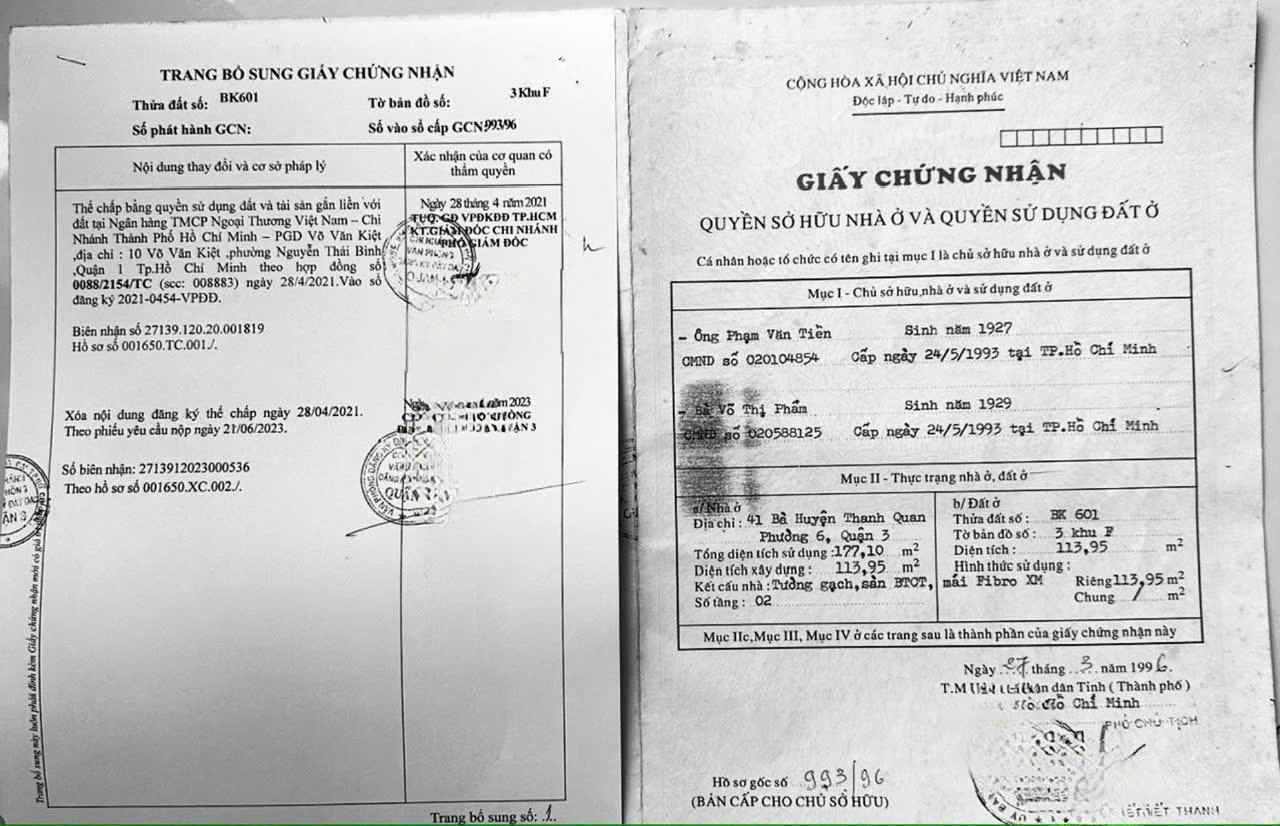 TRANG BỔ SUNG GIẤY CHỨNG NHẬN
Thửa đất số: BK601 Tờ bản đồ số: 3 Khu F
Số phát hành GCN: Số vào sổ cấp GCN: 993/96
Nội dung thay đổi và cơ sở pháp lý
Xác nhận của cơ quan có thẩm quyền
Thế chấp bằng quyền sử dụng đất và tài sản gắn liền với
đất tại Ngân hàng TMCP Ngoại Thương Việt Nam – Chi
Nhánh Thành Phố Hồ Chí Minh – PGD Võ Văn Kiệt
,địa chỉ : 10 Võ Văn Kiệt ,phường Nguyễn Thái Bình
,Quận 1 Tp.Hồ Chí Minh theo hợp đồng số
0088/2154/TC (scc: 008883) ngày 28/4/2021.Vào sổ
đăng ký 2021-0454-VPĐĐ.
Biên nhận số 27139.120.20.001819
Hồ sơ số 001650.TC.001./.
Ngày 28 tháng 4 năm 2021
TUQ.GĐ VPĐKĐĐ TP.HCM
KT.GIÁM ĐỐC CHI NHÁNH
PHÓ GIÁM ĐỐC
Xóa nội dung đăng ký thế chấp ngày 28/04/2021.
Theo phiếu yêu cầu nộp ngày 21/06/2023.
Số biên nhận: 2713912023000536
Theo hồ sơ số 001650.XC.002./.
Ngày năm 2023
QUẬN 3
Trang bổ sung này luôn phải đính kèm Giấy chứng nhận mới có giá trị
Trang bổ sung số: .1.
CỘNG HÒA XÃ HỘI CHỦ NGHĨA VIỆT NAM
Độc lập - Tự do - Hạnh phúc
GIẤY CHỨNG NHẬN
QUYỀN SỞ HỮU NHÀ Ở VÀ QUYỀN SỬ DỤNG ĐẤT Ở
Cá nhân hoặc tổ chức có tên ghi tại mục I là chủ sở hữu nhà ở và sử dụng đất ở
Mục I - Chủ sở hữu nhà ở và sử dụng đất ở
- Ông Phạm Văn Tiền Sinh năm 1927
CMND số 020104854 Cấp ngày 24/5/1993 tại TP.Hồ Chí Minh
- Bà Võ Thị Phẩm Sinh năm 1929
CMND số 020588125 Cấp ngày 24/5/1993 tại TP.Hồ Chí Minh
Mục II - Thực trạng nhà ở, đất ở
a/ Nhà ở
Địa chỉ : 41 Bà Huyện Thanh Quan
Phường 6, Quận 3
Tổng diện tích sử dụng :177,10 m²
Diện tích xây dựng : 113,95 m²
Kết cấu nhà : Tường gạch,sàn BTCT, mái Fibro XM
Số tầng : 02
b/ Đất ở
Thửa đất số : BK 601
Tờ bản đồ số : 3 khu F
Diện tích : 113,95 m²
Hình thức sử dụng :
Riêng 113,95 m²
Chung / m²
Mục IIc,Mục III, Mục IV ở các trang sau là thành phần của giấy chứng nhận này
Ngày 27 tháng 3 năm 1996.
T.M Ủy ban nhân dân Tỉnh ( Thành phố )
Hồ Chí Minh
PHÓ CHỦ TỊCH
Hồ sơ gốc số 993/96
(BẢN CẤP CHO CHỦ SỞ HỮU)
VIẾT THANH